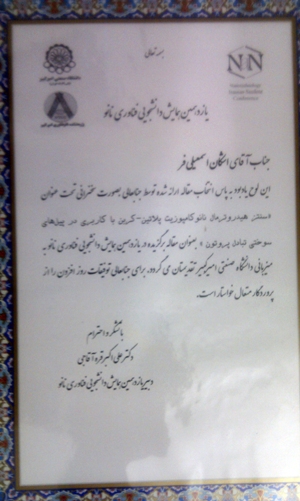 بسمه تعالی
NN
Nanotechnology
Student Conference
دانشگاه صنعتی امیرکبیر
یازدهمین همایش دانشجویی فناوری نانو
جناب آقای اشکان اسمعیلی فر
این لوح یادبود به پاس انتخاب مقاله ارائه شده توسط جنابعالی بصورت سخنرانی تحت عنوان
«سنتز هیدروترمال نانوکامپوزیت پلاتین-کربن با کاربری در پیل‌های
سوختی تبادل پروتون» بعنوان مقاله برگزیده در یازدهمین همایش دانشجویی فناوری نانو به
میزبانی دانشگاه صنعتی امیرکبیر تقدیمتان می گردد. برای جنابعالی توفیقات روز افزون را از
پروردگار متعال خواستار است.
با تشکر و احترام
دکتر علی اکبر قره آقاجی
دبیر یازدهمین همایش دانشجویی فناوری نانو